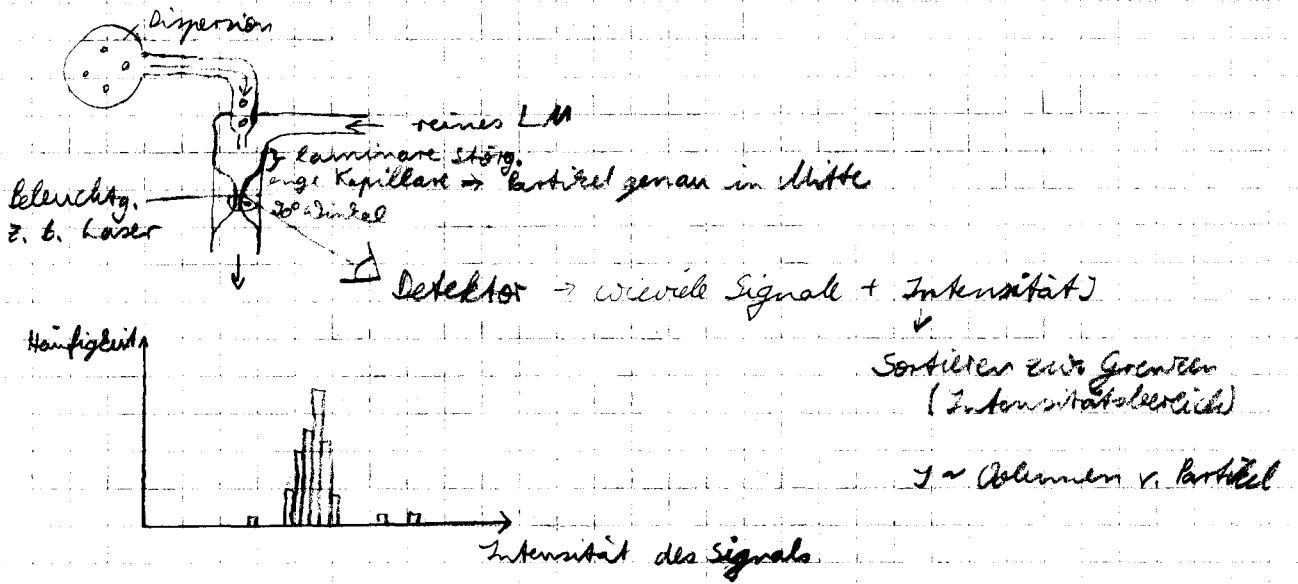 Dispersion
reines LM
} laminare Störg.
enge Kapillare → Partikel genau in Mitte
Beleuchtg.
z. B. Laser
90° Winkel
Detektor → wieviele Signale + Intensität J
↓
Sortieren zw. Grenzen
(Intensitätsbereich)
J ~ Volumen v. Partikel
Häufigkeit
Intensität des Signals